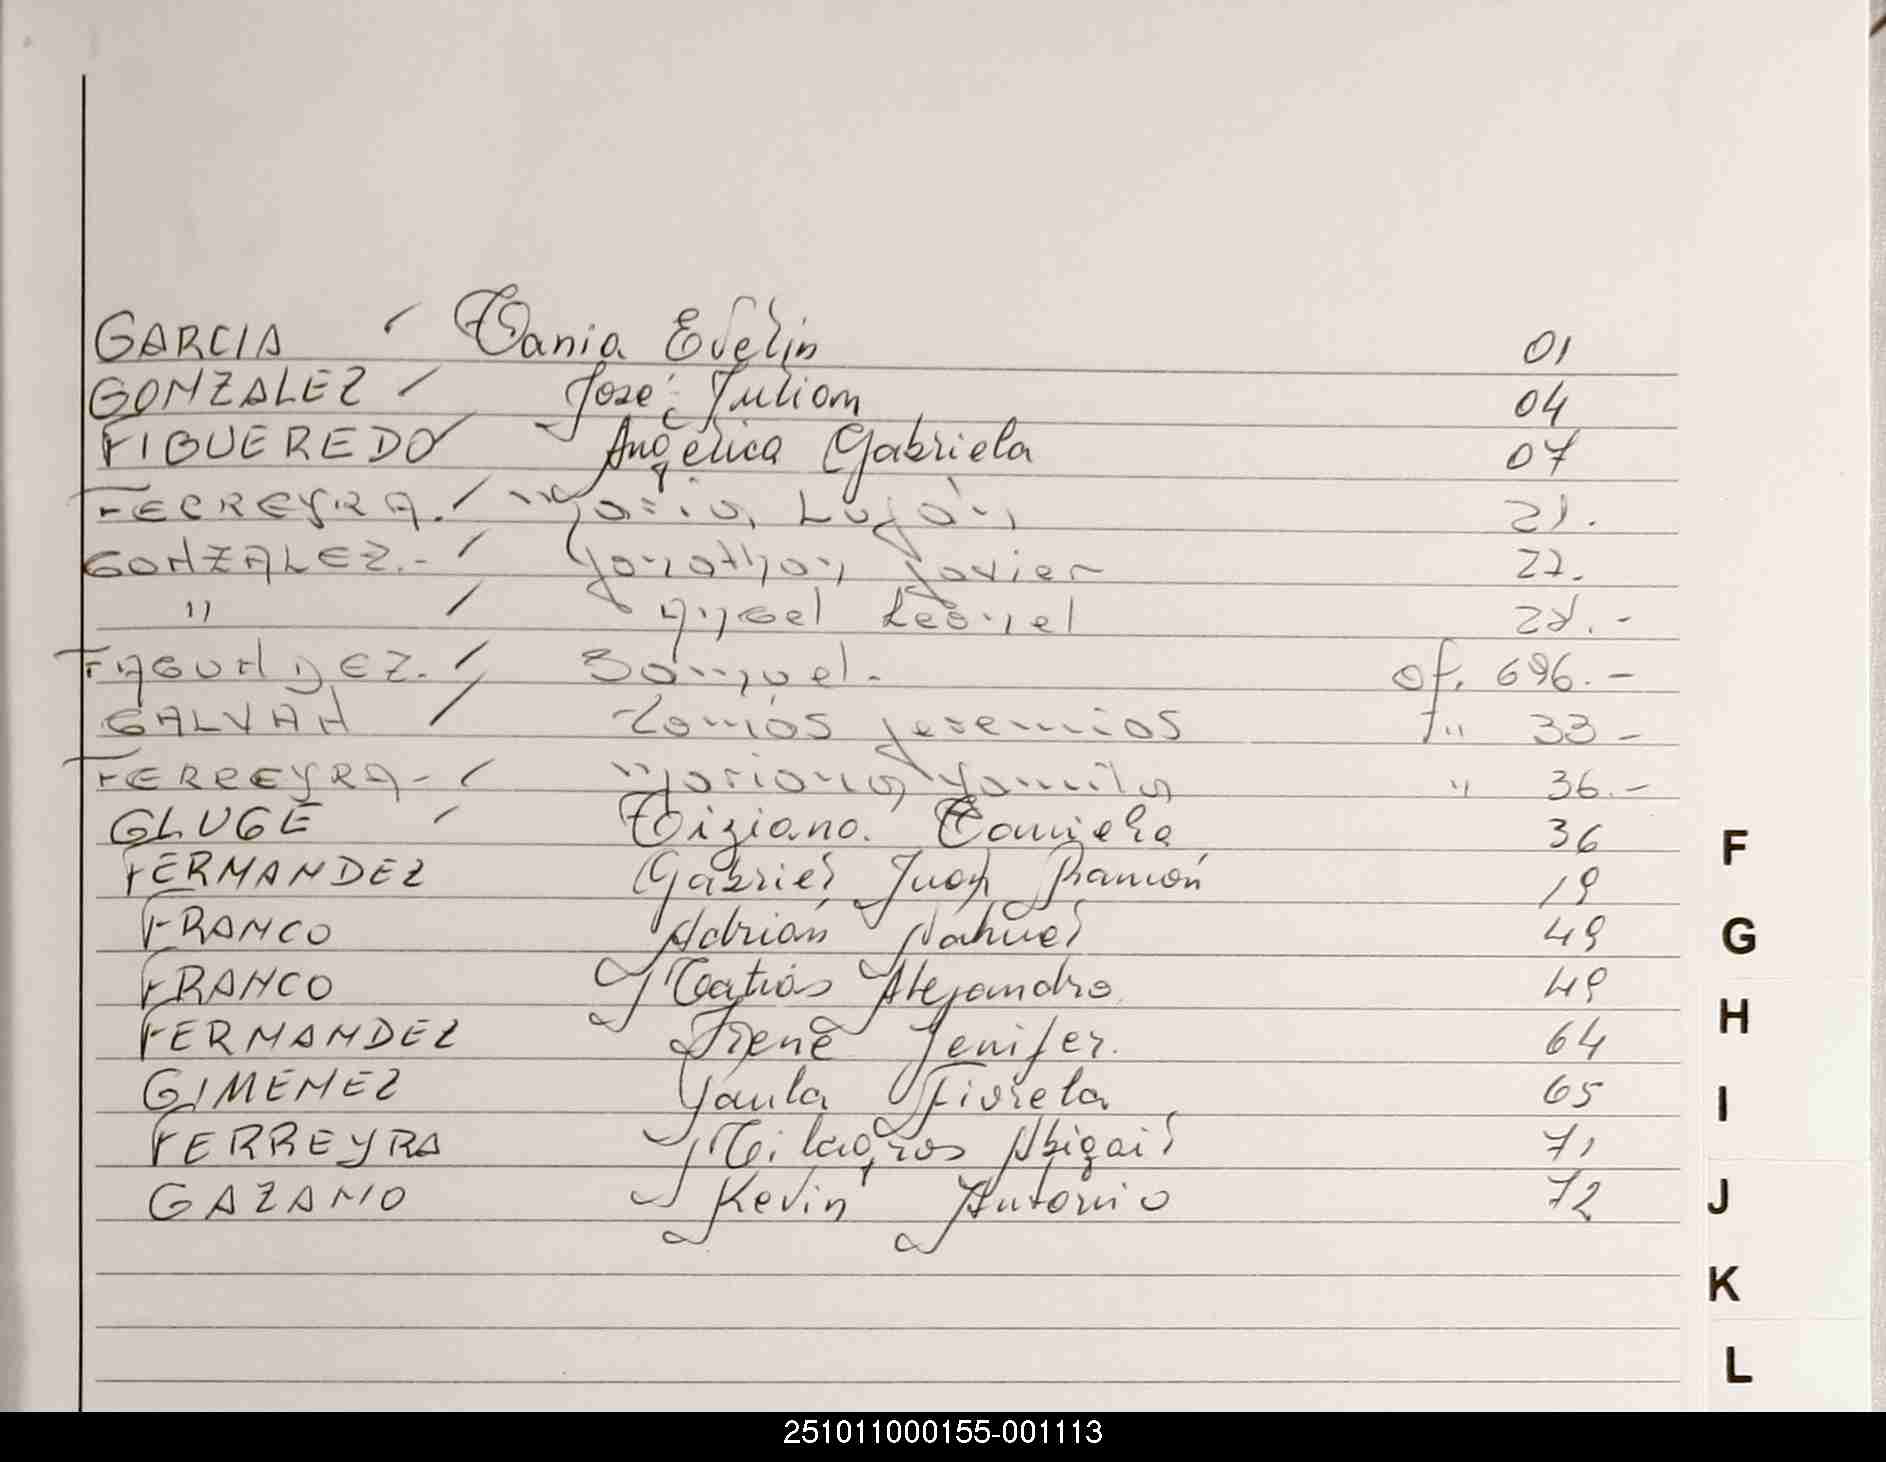 GARCIA / Tania Evelin 01
GONZALEZ / José Julian 04
FIGUEREDO / Angélica Gabriela 07
FERREYRA. / Maria Luján 21.
GONZALEZ.- / Jonathan Javier 27.
" / Angel Leonel 28.-
FAGUNDEZ. / Samuel. of. 696.-
GALVAN / Tomás Jeremias Fº 33-
FERREYRA- / Mariana Yamila " 36.-
GLUGE / Tiziano. 36
FERNANDEZ Gabriel Juan Ramón 19
FRANCO Adrián Nahuel 49
FRANCO Matias Alejandro 49
FERNANDEZ Irene Jenifer. 64
GIMENEZ Paula Fiorela 65
FERREYRA Milagros Abigail 71
GAZANO Kevin Antonio 72
F
G
H
I
J
K
L
251011000155-001113